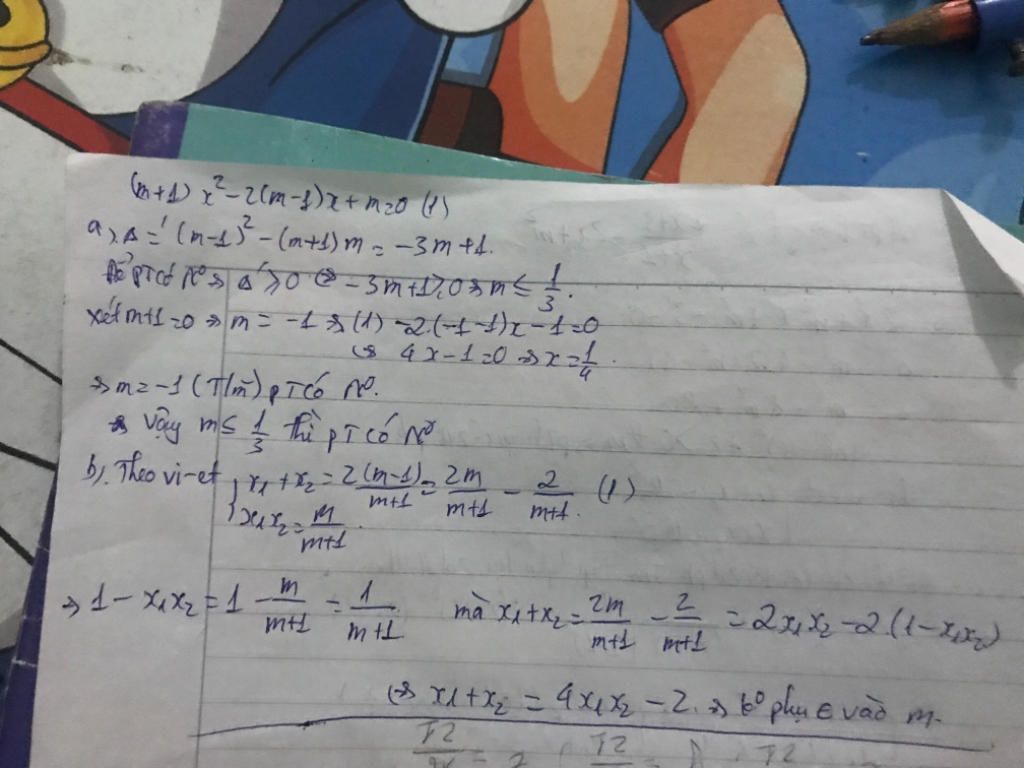 (m+1) x² - 2(m-1)x + m=0 (1)
a), Δ' = (m-1)² - (m+1)m = -3m+1.
Để PT có No ⇒ Δ' ≥ 0 ⇔ -3m+1≥0 ⇒ m ≤ 1/3.
xét m+1=0 ⇒ m = -1 ⇒ (1) -2.(-1-1)x - 1=0
⇔ 4x-1=0 ⇒ x = 1/4.
⇒ m = -1 (T/m) PT có No.
⇒ Vậy m ≤ 1/3 thì PT có No
b), Theo vi-et { x1 + x2 = 2(m-1)/m+1 = 2m/m+1 - 2/m+1. (1)
x1x2 = m/m+1.
⇒ 1 - x1x2 = 1 - m/m+1 = 1/m+1 mà x1+x2 = 2m/m+1 - 2/m+1 = 2x1x2 - 2.(1-x1x2)
⇔ x1+x2 = 4x1x2 - 2. ⇒ ko phụ ∈ vào m.